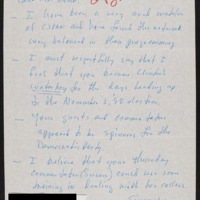 - I have been a very avid watcher
of CSPAN and have found the network
very balanced in their programming
- I must respectfully say that I
feel that you became Clinton's
watchboy for the days leading up
to the November 3, '98 election.
- Your guests and commentators
appeared to be spinners for the
Democratic Party.
- I believe that your Thursday
commentator (Susan) could use some
training in dealing with her callers